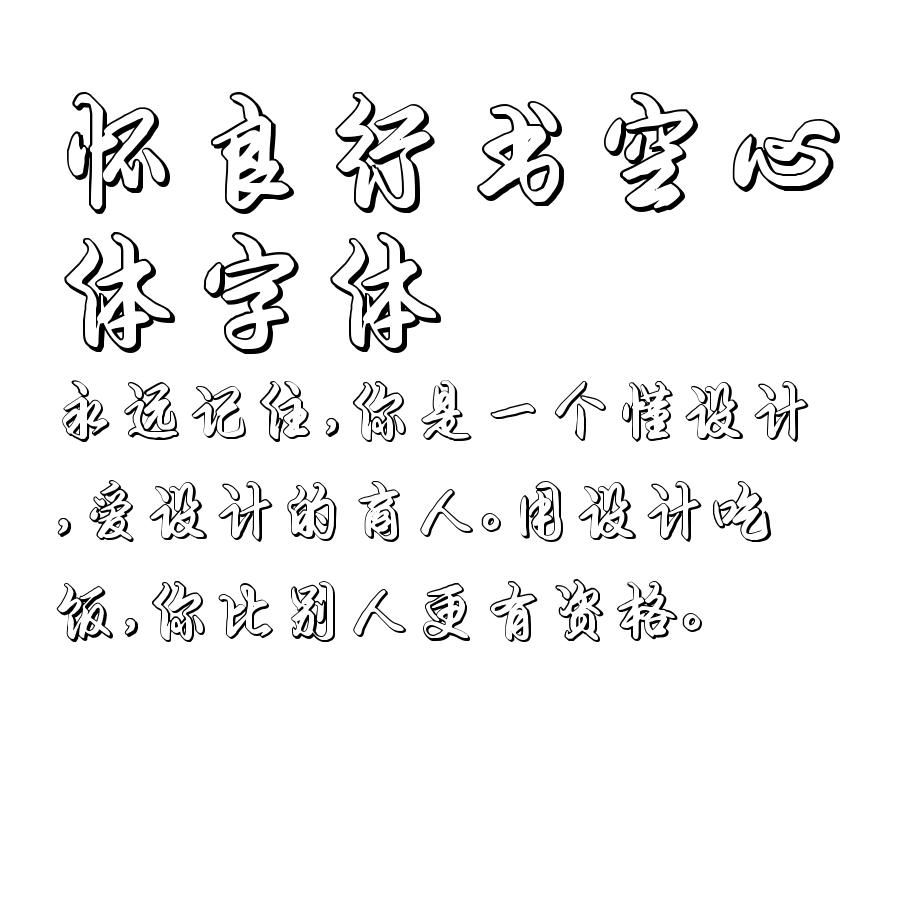 怀良行书空心
体字体
永远记住,你是一个懂设计
,爱设计的育人。用设计吃
饭,你比别人更有资格。